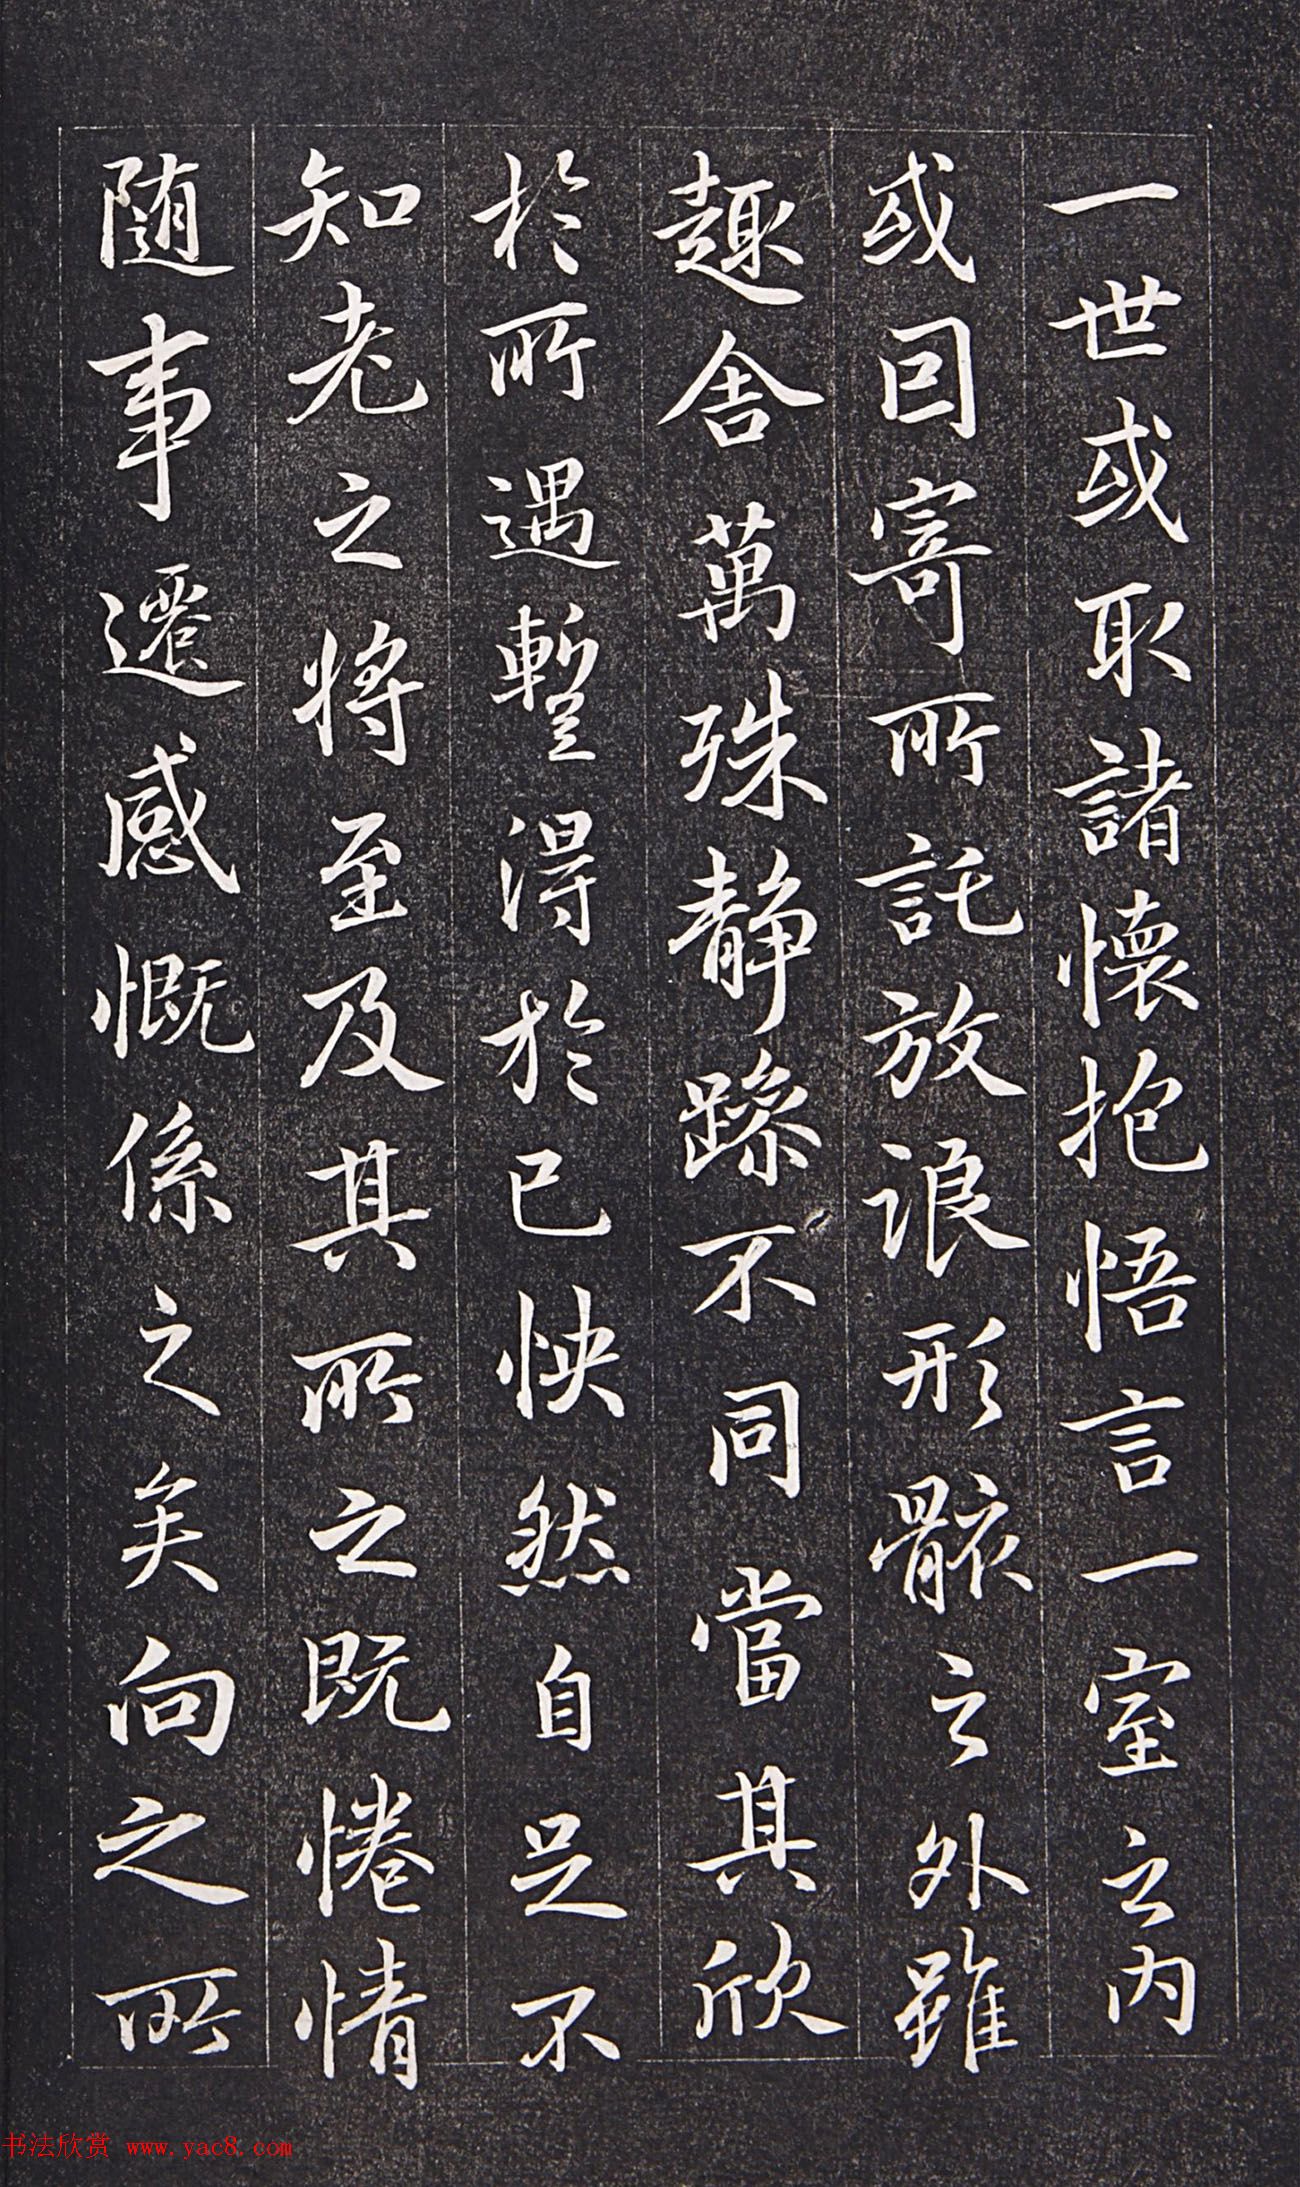 一世或取諸懷抱悟言一室之内
或因寄所託放浪形骸之外雖
趣舍萬殊静躁不同當其欣
於所遇蹔得於己怏然自足不
知老之將至及其所之既惓情
随事遷感慨係之矣向之所
书法欣赏 www.yac8.com